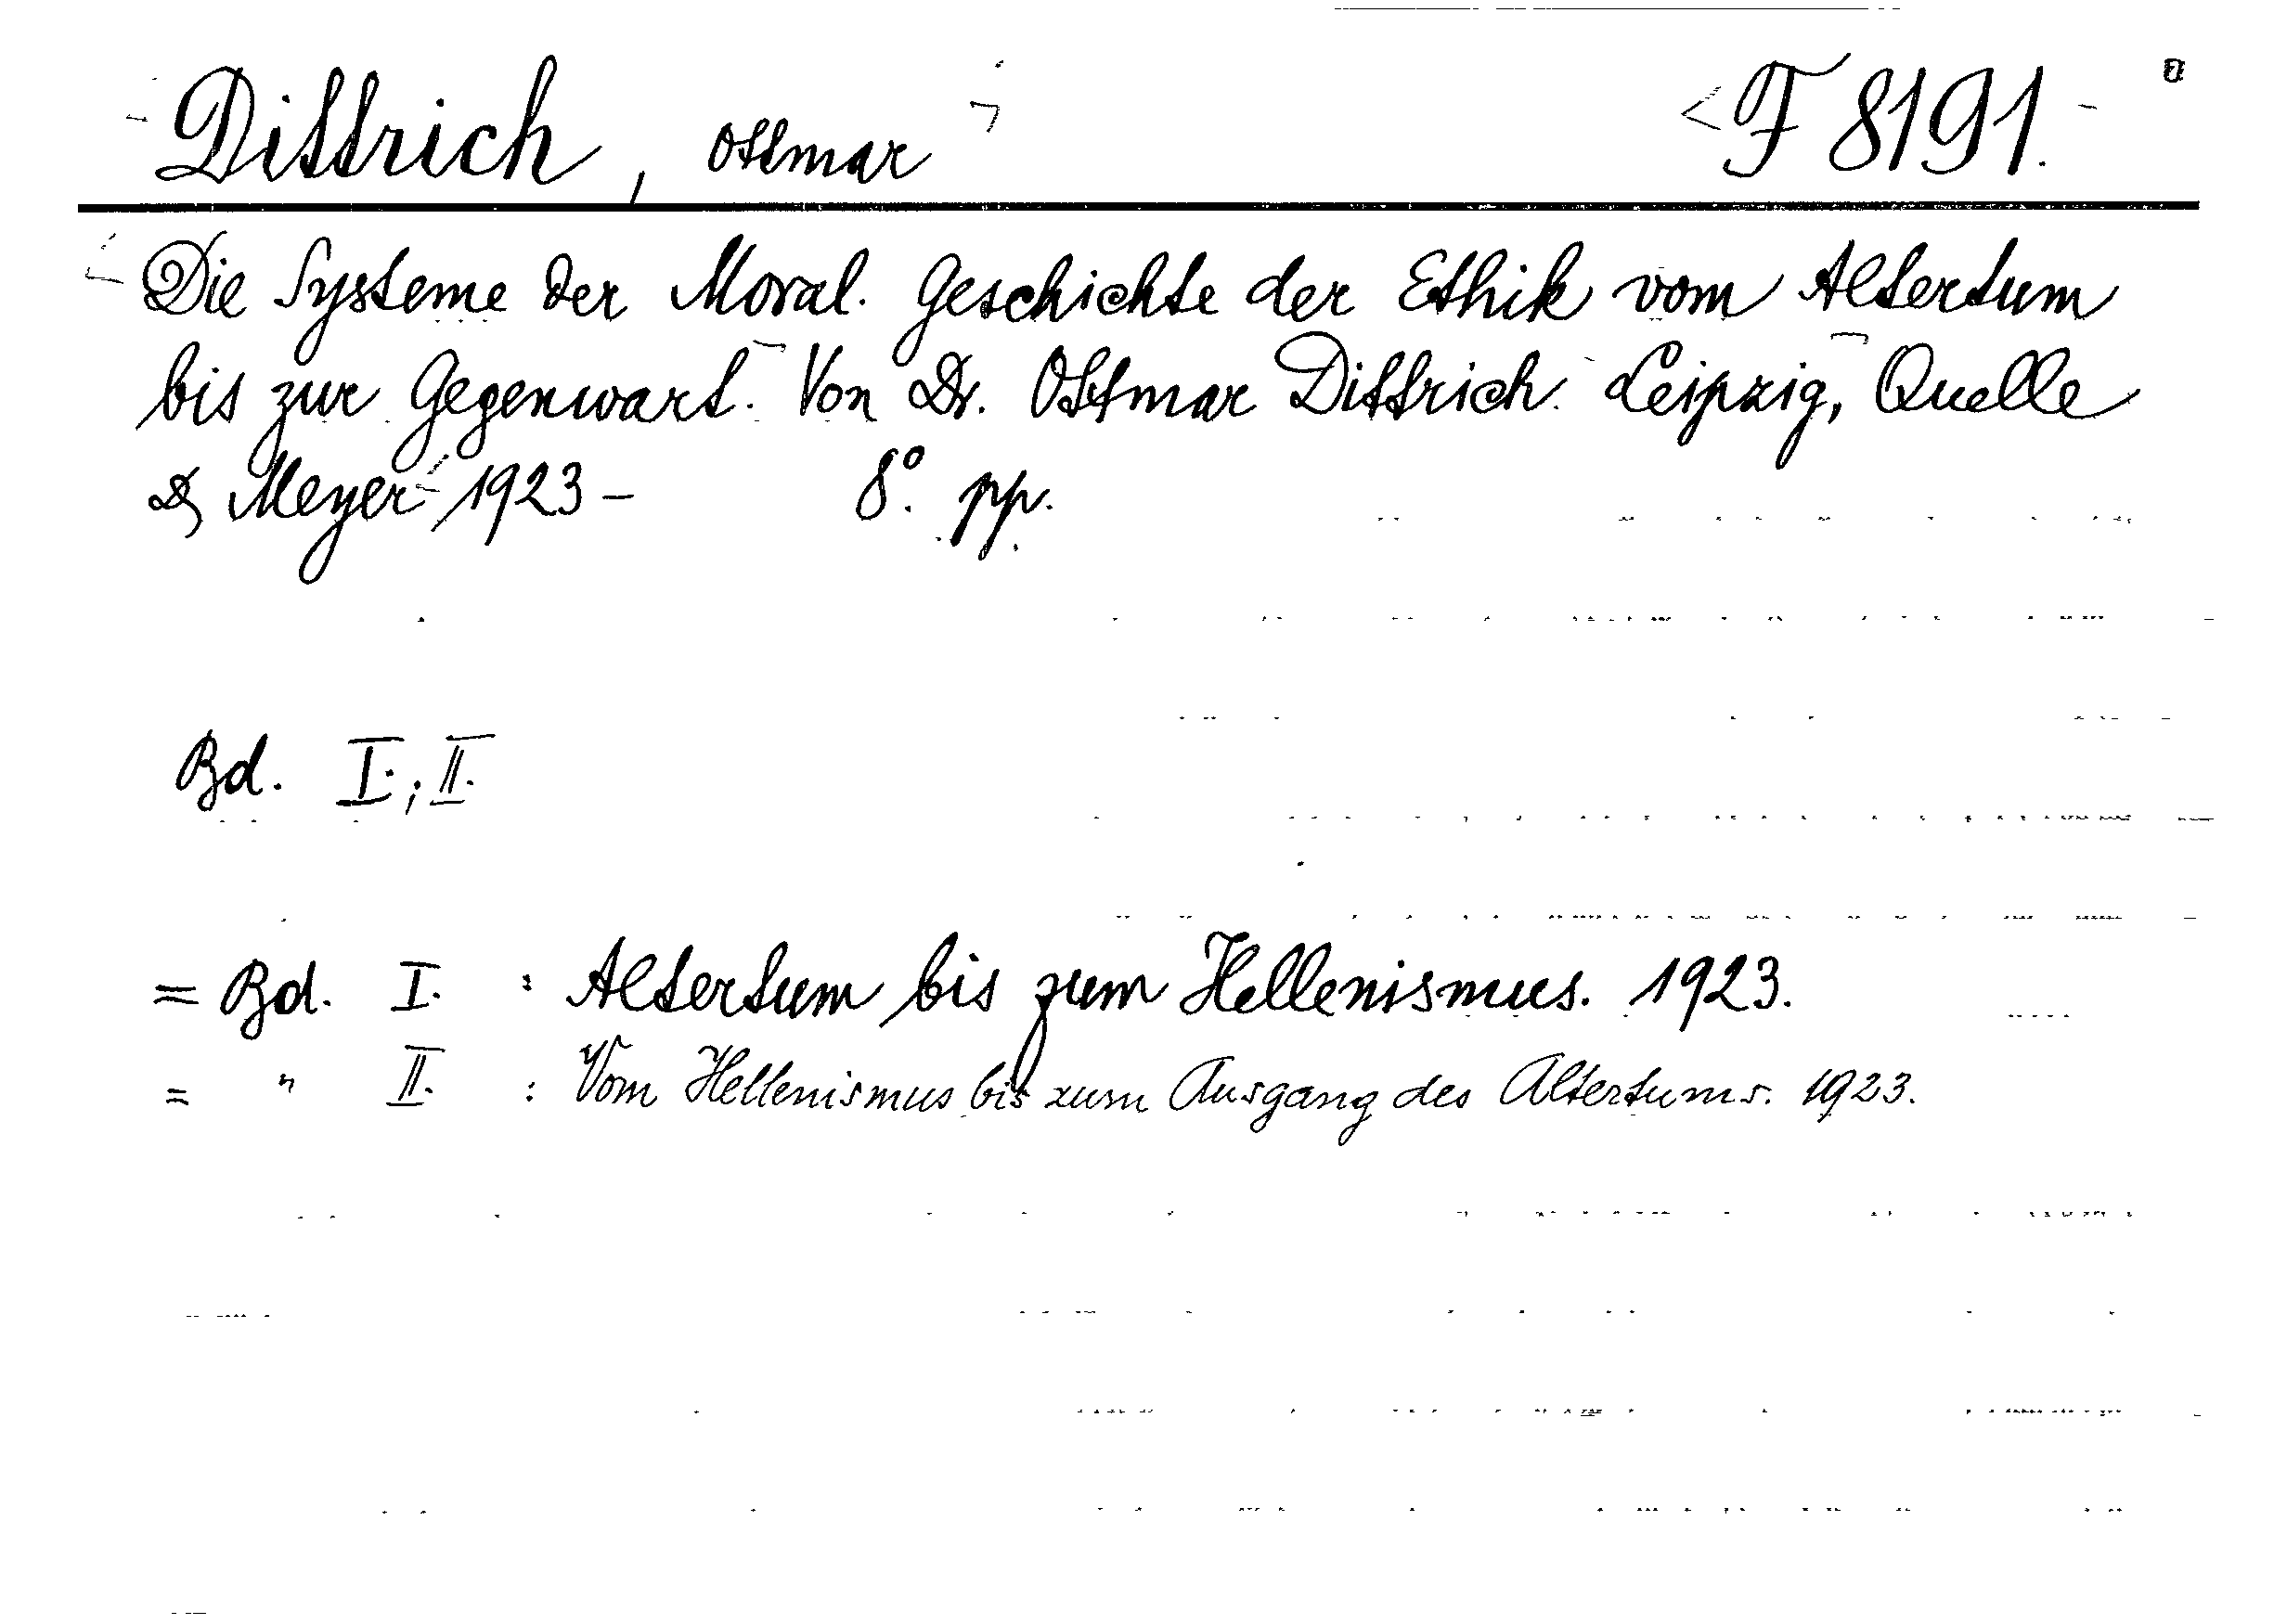 Dittrich, Ottmar F 8191.
Die Systeme der Moral. Geschichte der Ethik vom Altertum
bis zur Gegenwart. Von Dr. Ottmar Dittrich. Leipzig, Quelle
& Meyer 1923 – 8°. pp.
Bd. I.; II.
= Bd. I. : Altertum bis zum Hellenismus. 1923.
= " II. : Vom Hellenismus bis zum Ausgang des Altertums. 1923.